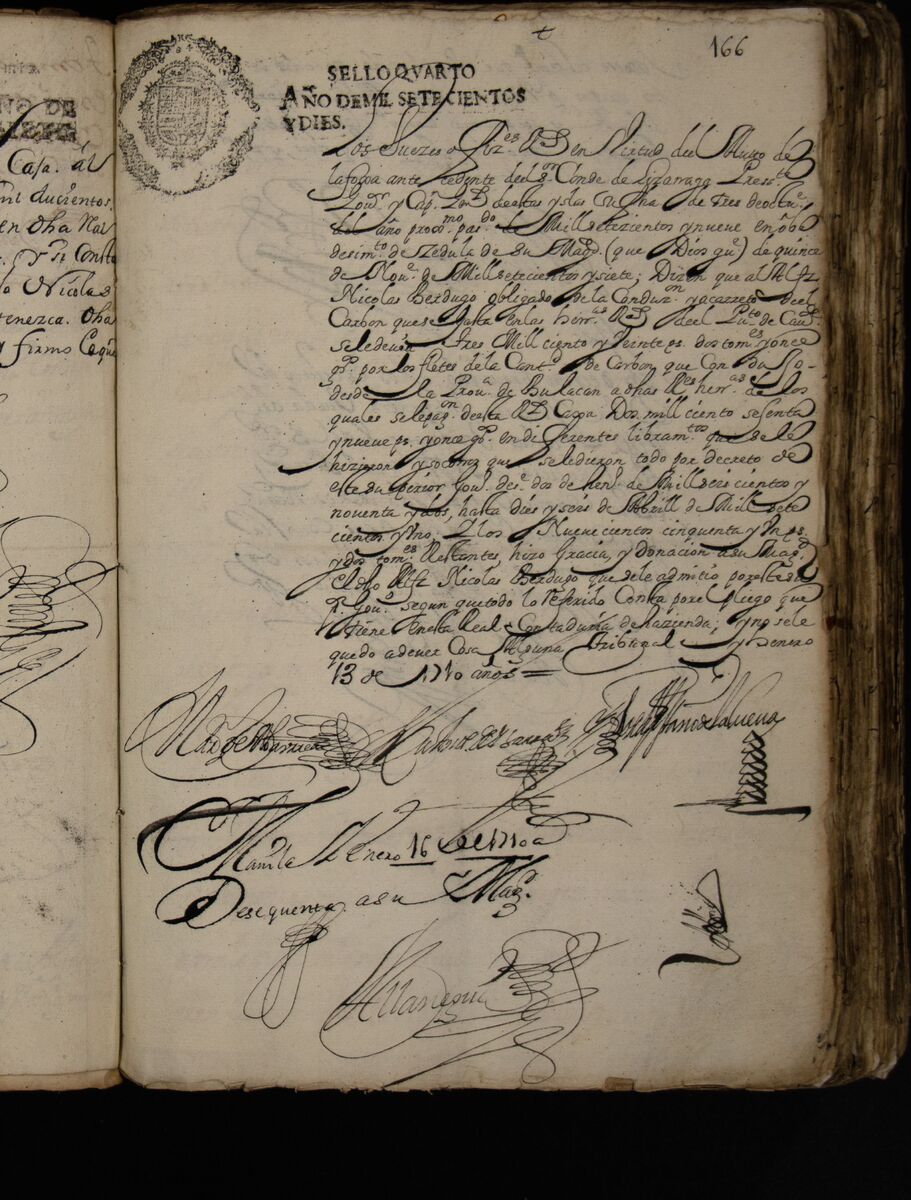 NO DE
SIETE
Casa. al
mil ducientos
en dha Nao
Nicolas
tenezca. dha
y firmo Co que
166
SELLO QVARTO
AÑO DE MIL SETECIENTOS
Y DIES.
Los Juezes offiz.es R.s en Virtud del Auto de
la foxa ante zedente del S.or Conde de Lizarraga Press.te
Gov.or y Cap.n Gen.l de estas yslas Su fha de tres de octu.e
del año proc.mo pas.do de Mill setezientos y nueve en obe
desim.to de zedula de Su Mag.d (que Dios g.e) de quince
de Nov.e de Mill setezientos y siete; Dizen que al Alf.z
Nicolas Berdugo obligado de la Conduz.on y acarreto del
Carbon que se gasta en las herr.as R.s del Pu.to de Cau.te
se le devian tres Mill ciento y veinte p.s dos tom.es y once
g.s por los fletes de la Cant.d de Carbon que Condujo
desde la Prov.a de Bulacan a dhas R.es herr.as de los
quales se le pag.on de esta R.l Caxa Dos mill ciento sesenta
y nueve p.s y once g.s en diferentes libram.tos que se le
hizieron y socorros que se le dieron todo por decreto de
este Superior Gov.o desde dos de hen.o de Mill seis cientos y
noventa y dos, hasta dies y seis de Abrill de Mill sete
cientos y Vno, Y los Nuevecientos cinquenta y Vn p.s
y dos tom.es Restantes, hizo Gracia, y donacion a su Mag.d
el dho Alf.z Nicolas Berdugo que se le admitio por este Su
p.r Gov.o segun que todo lo Referido Consta por el Pliego que
tiene en esta Real Contaduria de hazienda; y no se le
quedo a dever Cosa Alguna Tribunal y henero
13 de 1710 años =
Manila Y Enero 16 de 1710 a
Dese quenta a su Mag.d